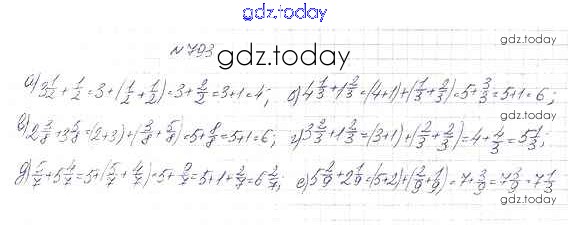 gdz.today
№793
gdz.today
gdz.today
а) 3 1/2 + 1/2 = 3 + (1/2 + 1/2) = 3 + 2/2 = 3 + 1 = 4; б) 4 1/3 + 1 2/3 = (4+1) + (1/3 + 2/3) = 5 + 3/3 = 5 + 1 = 6;
в) 2 3/8 + 3 5/8 = (2+3) + (3/8 + 5/8) = 5 + 8/8 = 5 + 1 = 6; г) 3 2/3 + 1 2/3 = (3+1) + (2/3 + 2/3) = 4 + 4/3 = 5 1/3;
д) 5/7 + 5 4/7 = 5 + (5/7 + 4/7) = 5 + 9/7 = 5 + 1 + 2/7 = 6 2/7; е) 5 2/9 + 2 1/9 = (5+2) + (2/9 + 1/9) = 7 + 3/9 = 7 3/9 = 7 1/3
gdz.today
gdz.today
gdz.today